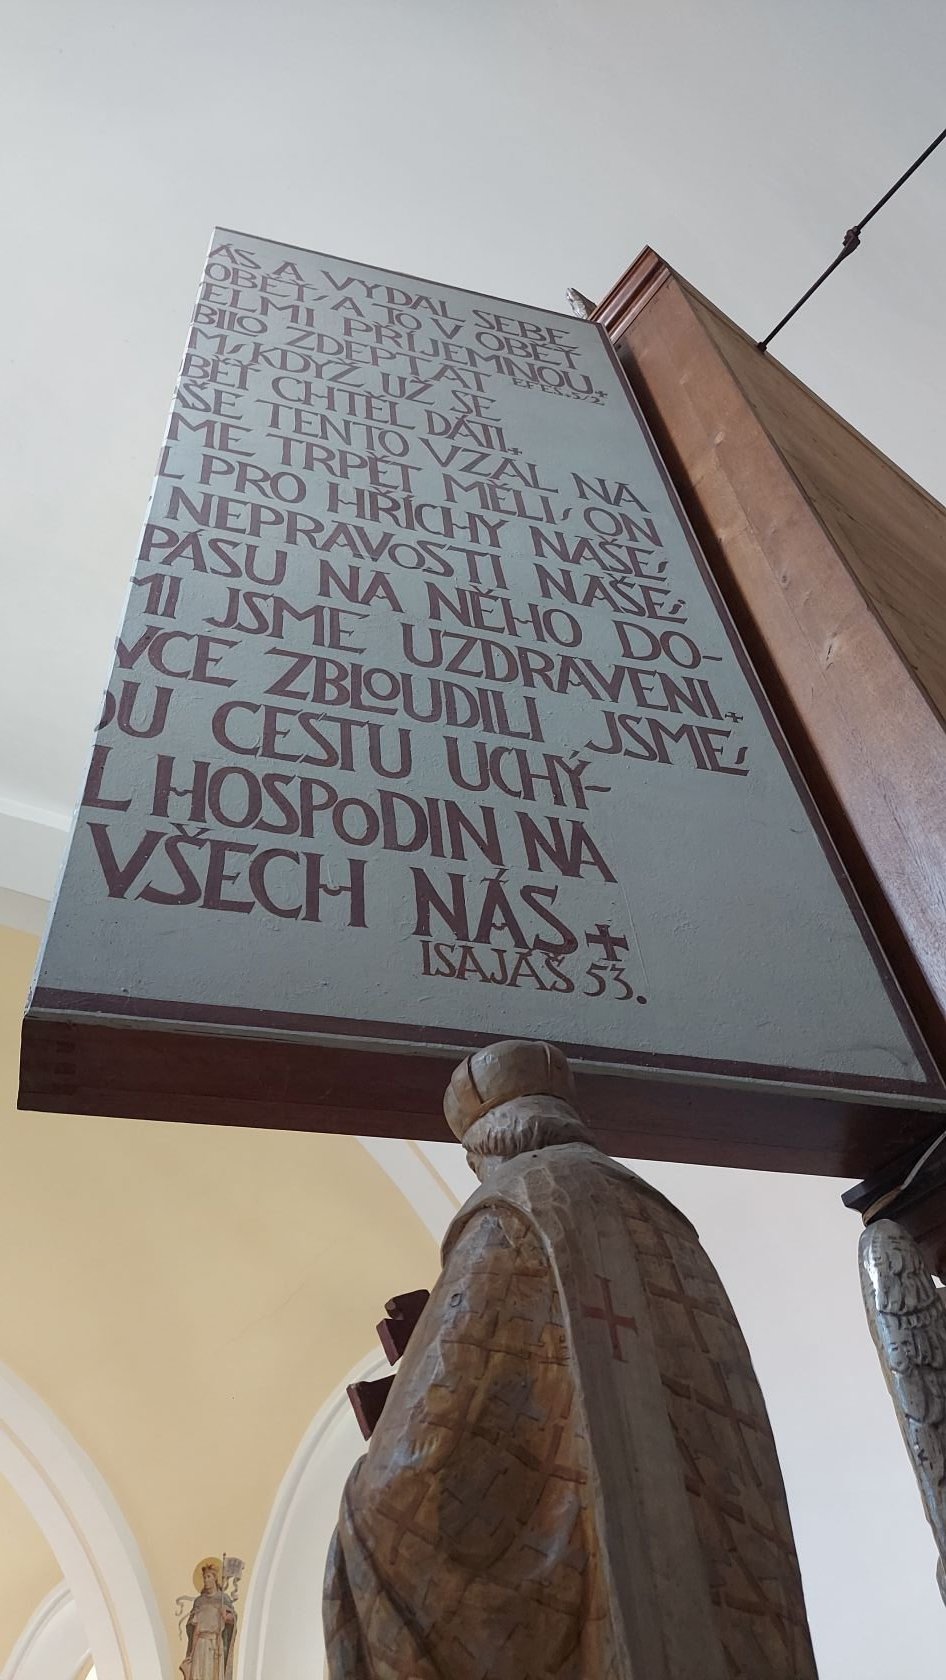 ÁS A VYDAL SEBE
OBĚŤ, A TO V OBĚŤ
ELMI PŘÍJEMNOU.+
EFES. 5/2.
BILO ZDEPTAT
M, KDYŽ UŽ SE
BĚŤ CHTĚL DÁTI.+
ŠE TENTO VZAL NA
ME TRPĚT MĚLI, ON
L PRO HŘÍCHY NAŠE,
NEPRAVOSTI NAŠE;
PASU NA NĚHO DO-
MI JSME UZDRAVENI.+
VCE ZBLOUDILI JSME,
OU CESTU UCHÝ-
L HOSPODIN NA
VŠECH NÁS +
ISAJÁŠ 53.